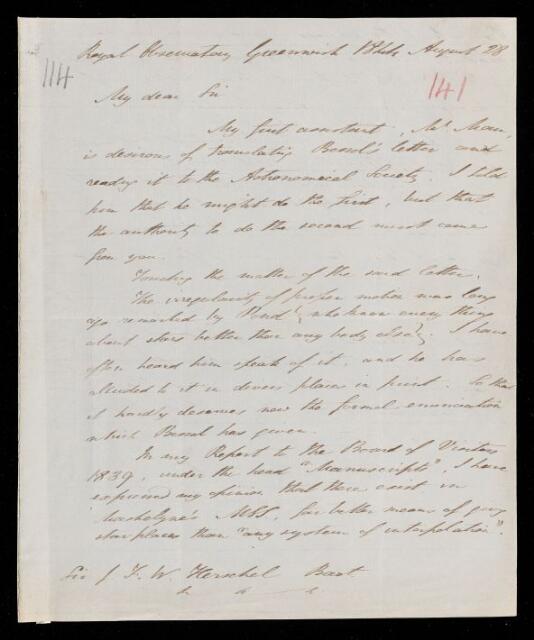 Royal Observatory Greenwich 1844 August 28
114
141
My dear Sir
My first assistant, Mr Main,
is desirous of translating Bessel's letter and
reading it to the Astronomical Society. I told
him that he might do the first, but that
the authority to do the second must come
from you.
Touching the matter of the said letter.
The irregularity of proper motion was long
ago remarked by Pond (who knew every thing
about stars better than any body else). I have
often heard him speak of it, and he has
alluded to it in divers places in print. So that
it hardly deserves now the formal enunciation
which Bessel has given.
In my Report to the Board of Visitors
1839, under the head "Manuscripts", I have
expressed my opinion that there exist in
Maskelyne's MSS. far better means of
star places than "any system of interpolation".
Sir J. F. W. Herschel Bart